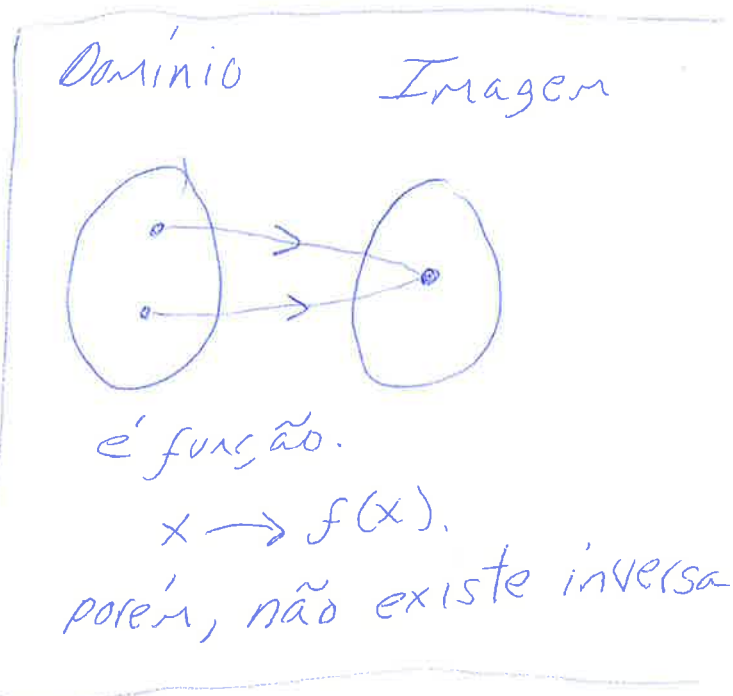 Domínio Imagem
é função.
x → f(x).
porém, não existe inversa